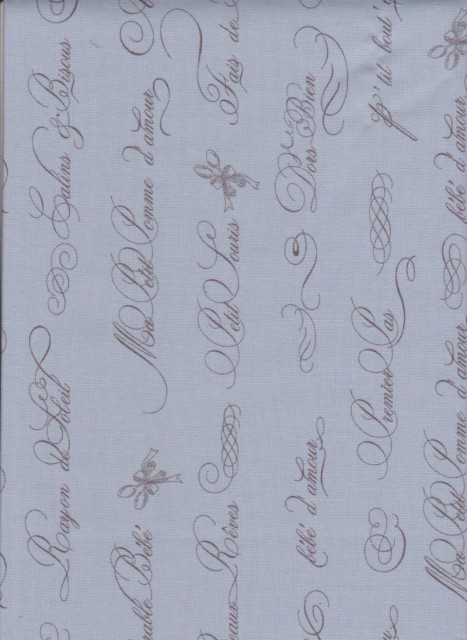 Rayon de Soleil
Calins & Bisous
Bébé
Ma Petite Pomme d'amour
Rêves
Petit Souris
Fais de
bébé d'amour
Dors Bien
Premier Pas
P'tit bout'
Ma Petite Pomme d'amour
bébé d'amour